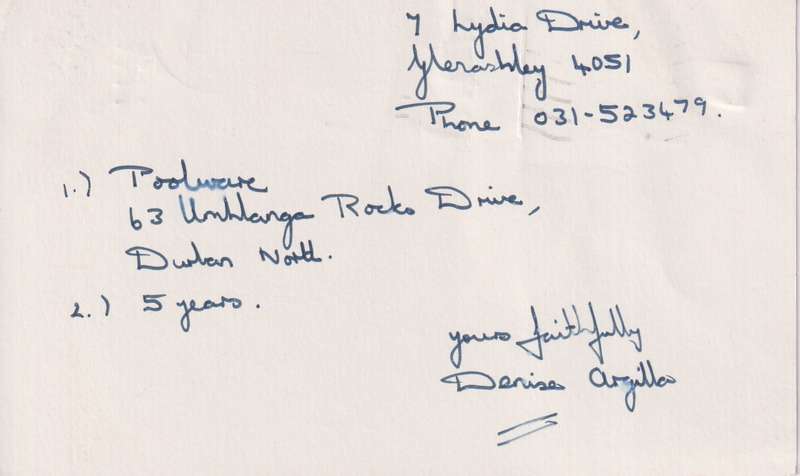 7 Lydia Drive,
Glenashley 4051
Phone 031-523479.
1.) Poolware
63 Umhlanga Rocks Drive,
Durban North.
2.) 5 years.
yours faithfully
Denise Argillo